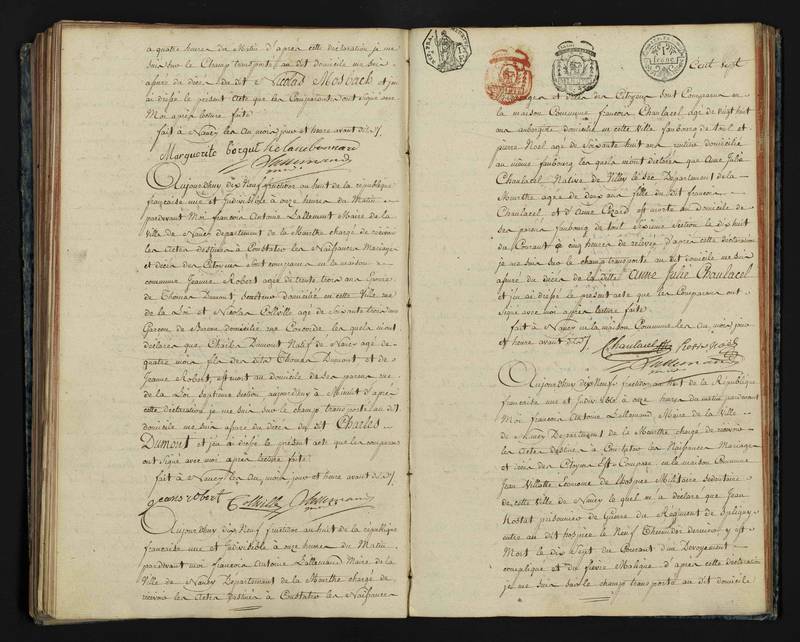 a quatre heures du Matin d'après cette déclaration je me
suis sur le Champ transporté au dit domicile me suis
assuré du décès du dit Nicolas Mosbach et j'ai
ai dressé le présent Acte que les Comparans ont Signé avec
Moi après lecture faite
fait à Nancy les An mois jour et heure avant dits
Marguerite
Lallemand
Aujourdhuy dix Neuf fructidor an huit de la république
française une et Indivisible à onze heures du Matin
pardevant Moi francois Antoine Lallemand Maire de la
Ville de Nancy departement de la Meurthe chargé de recevoir
les Actes destinés à Constater les Naissances Mariages
et décès des Citoyens sont comparus en la maison
commune Jeanne Robert agée de trente trois ans Epouse
de Thomas Dumont domiciliée en cette Ville rue
de la Loi et Nicolas Collville agé de Soixante trois ans
Garçon de domicilié rue Concorde les quels m'ont
déclaré que Charles Dumont Natif de Nancy agé de
quatre mois fils des dits Thomas Dumont et de
Jeanne Robert, est mort au domicile de ses parens rue
de la Loi Septieme Section aujourdhuy à Minuit d'après
cette déclaration je me suis sur le champ transporté au dit
domicile me suis assuré du décès du dit Charles
Dumont et j'ai dressé le présent acte que les comparans
ont Signé avec moi après lecture faite
fait à Nancy les An, mois, jour et heure avant dits
jeanne robert Collville Lallemand
Aujourdhuy dix Neuf fructidor an huit de la république
française une et Indivisible à onze heures du Matin
pardevant moi francois Antoine Lallemand Maire de la
Ville de Nancy Departement de la Meurthe chargé de
recevoir les Actes destinés à Constater les Naissances
Cent vingt
et décès des Citoyens sont Comparus en
la maison Commune francois Chanlacel agé de vingt huit
ans aubergiste domicilié en cette ville faubourg de toul et
pierre Noel agé de Soixante huit ans domicilié
au même faubourg les quels m'ont déclaré que Anne Julie
Chanlacel Native de Villey le Sec Departement de la
Meurthe agée de deux ans fille du dit francois
Chanlacel et d'Anne est morte au Domicile de
ses parens faubourg de toul Section le dix huit
du Courant à cinq heures de relevée d'après cette déclaration
je me suis sur le champ transporté au dit domicile me suis
assuré du décès de la ditte Anne Julie Chanlacel
et j'ai ai dressé le présent acte que les Comparans ont
Signé avec moi après lecture faite
fait à Nancy en la maison Commune les An, mois jour
et heure avant dits
Chanlacel
Lallemand
Aujourdhuy dix Neuf fructidor an huit de la République
française une et Indivisible à onze heures du matin pardevant
Moi francois Antoine Lallemand Maire de la Ville
de Nancy Departement de la Meurthe chargé de recevoir
les Actes destinés à Constater les Naissances Mariages
et décès des Citoyens Est Comparu en la maison Commune
Jean Villatte Econome de l'hospice Militaire sédentaire
de cette ville de Nancy le quel m'a déclaré que Jean
Rostat prisonnier de Guerre du Regiment de
entré au dit hospice le Neuf Thermidor dernier y est
Mort le dix Sept du Courant d'un Devoyement
compliqué et du fièvre Maligne d'après cette déclaration
je me suis sur le champ transporté au dit domicile